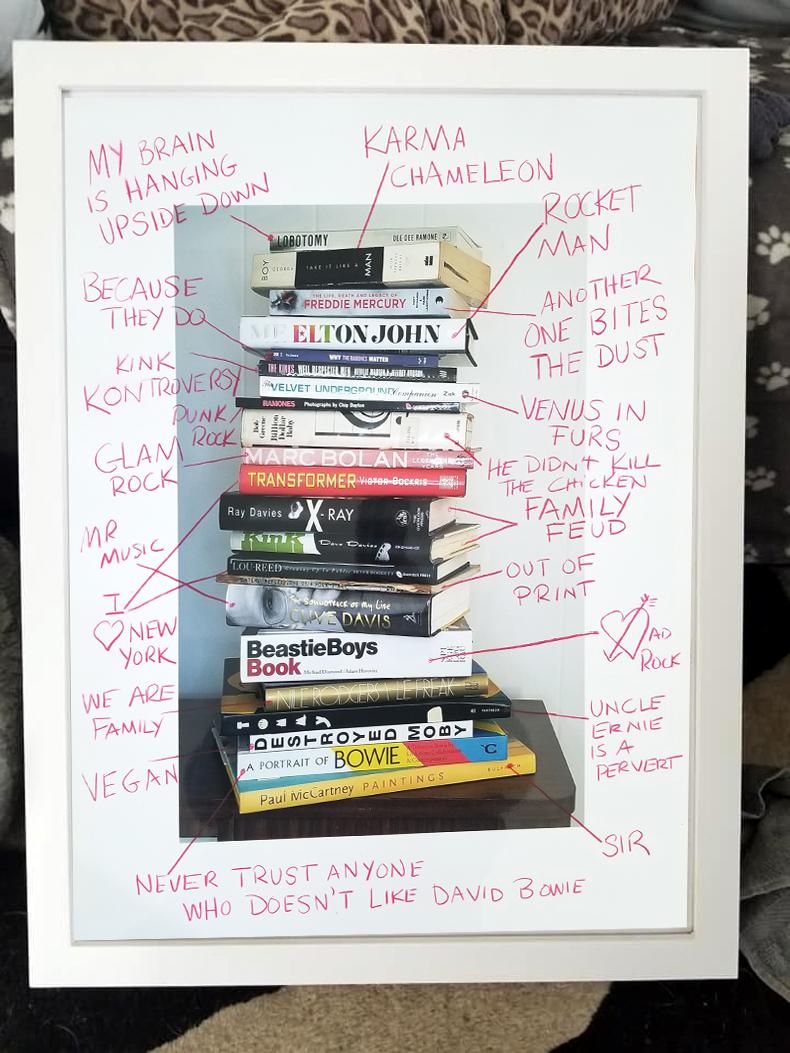 MY BRAIN
IS HANGING
UPSIDE DOWN
KARMA
CHAMELEON
ROCKET
MAN
LOBOTOMY DEE DEE RAMONE
BOY GEORGE TAKE IT LIKE A MAN
BECAUSE
THEY DO
THE LIFE, DEATH AND LEGACY OF
FREDDIE MERCURY
ANOTHER
ONE BITES
THE DUST
ME ELTON JOHN
WHY THE RAMONES MATTER
KINK
KONTROVERSY
THE KINKS WELL RESPECTED MEN
The VELVET UNDERGROUND Companion Zak
RAMONES Photographs by Chip Dayton
VENUS IN
FURS
PUNK
ROCK
Bob Greene Billion Dollar Baby
HE DIDN'T KILL
THE CHICKEN
GLAM
ROCK
MARC BOLAN THE LEGENDARY YEARS
TRANSFORMER VICTOR BOCKRIS
Ray Davies X-RAY
FAMILY
FEUD
MR
MUSIC
Kink Dave Davies
LOU REED Growing Up in Public PETER DOGGETT
OUT OF
PRINT
I
♡ NEW
YORK
The SOUNDTRACK of My Life
CLIVE DAVIS
BeastieBoys
Book Michael Diamond / Adam Horovitz
AD
ROCK
WE ARE
FAMILY
NILE RODGERS LE FREAK
TOMMY PANTHEON
UNCLE
ERNIE
IS A
PERVERT
VEGAN
DESTROYED MOBY
A PORTRAIT OF BOWIE
Paul McCartney PAINTINGS BULFINCH
SIR
NEVER TRUST ANYONE
WHO DOESN'T LIKE DAVID BOWIE